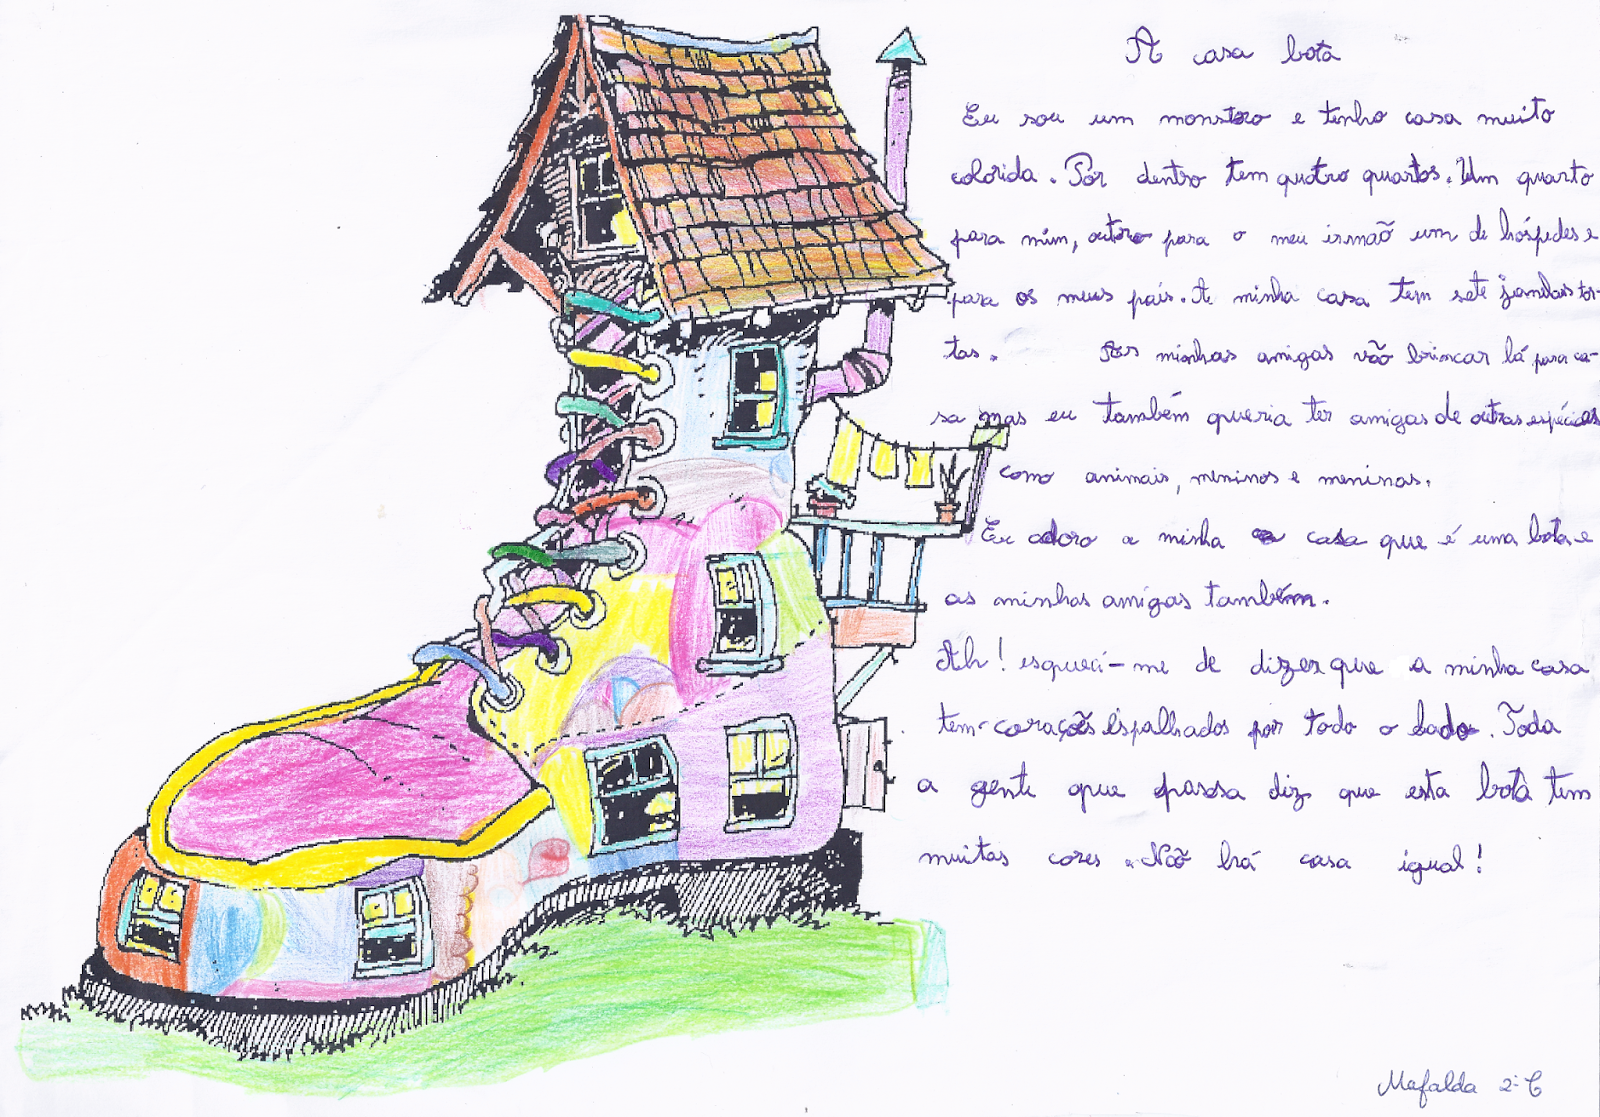 A casa bota
Eu sou um monstro e tenho casa muito
colorida. Por dentro tem quatro quartos. Um quarto
para mim, outro para o meu irmão um de hóspedes e
para os meus pais. A minha casa tem sete janelas tor-
tas. As minhas amigas vão brincar lá para ca-
sa mas eu também queria ter amigas de outras espécies
como animais, meninos e meninas.
Eu adoro a minha casa que é uma bota e
as minhas amigas também.
Ah! esqueci-me de dizer que a minha casa
tem corações espalhados por todo o lado. Toda
a gente que passa diz que esta bota tem
muitas cores. Não há casa igual!
Mafalda 2.º C